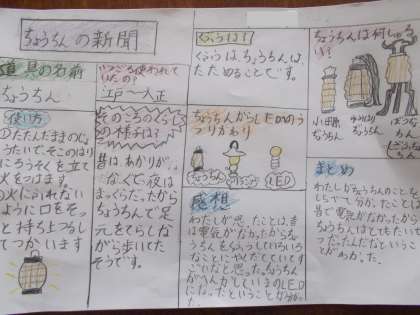 ちょうちんの新聞
道具の名前
ちょうちん
いつごろ使われていたの?
江戸〜大正
使い方
①たたんだままのじょ
うたいで、そこのはり
にろうそくを立て
火をつけます。
②火にふれない
ように口をそっ
と持ち上
してつかいます
そのころのくらし
の様子は?
昔は、あかりが
なくて、夜は
まっくらだったから
ちょうちんで足
元をてらしな
がら歩いてた
そうです。
くふうは?
くふうは、ちょうちんは、
たためることです。
ちょうちんからしょうめいの
うつりかわり
ちょうちん
LED
感想
わたしが思ったことは、昔
は電気がなかったから
ちょうちんをくふうしていろいろ
なことにやくだてていてす
ごいなと思った。ちょうちん
がへんかしていまのLED
になったということが分かっ
た。
ちょうちんは何しゅ
るい?
小田原
ちょうちん
ちょうちん
ちょうちん
まとめ
わたしがちょうちんのことを
しらべて分かったことは
昔で電気がなかったから
ちょうちんはとてもだいじ
だったんだなということ
がわかった。